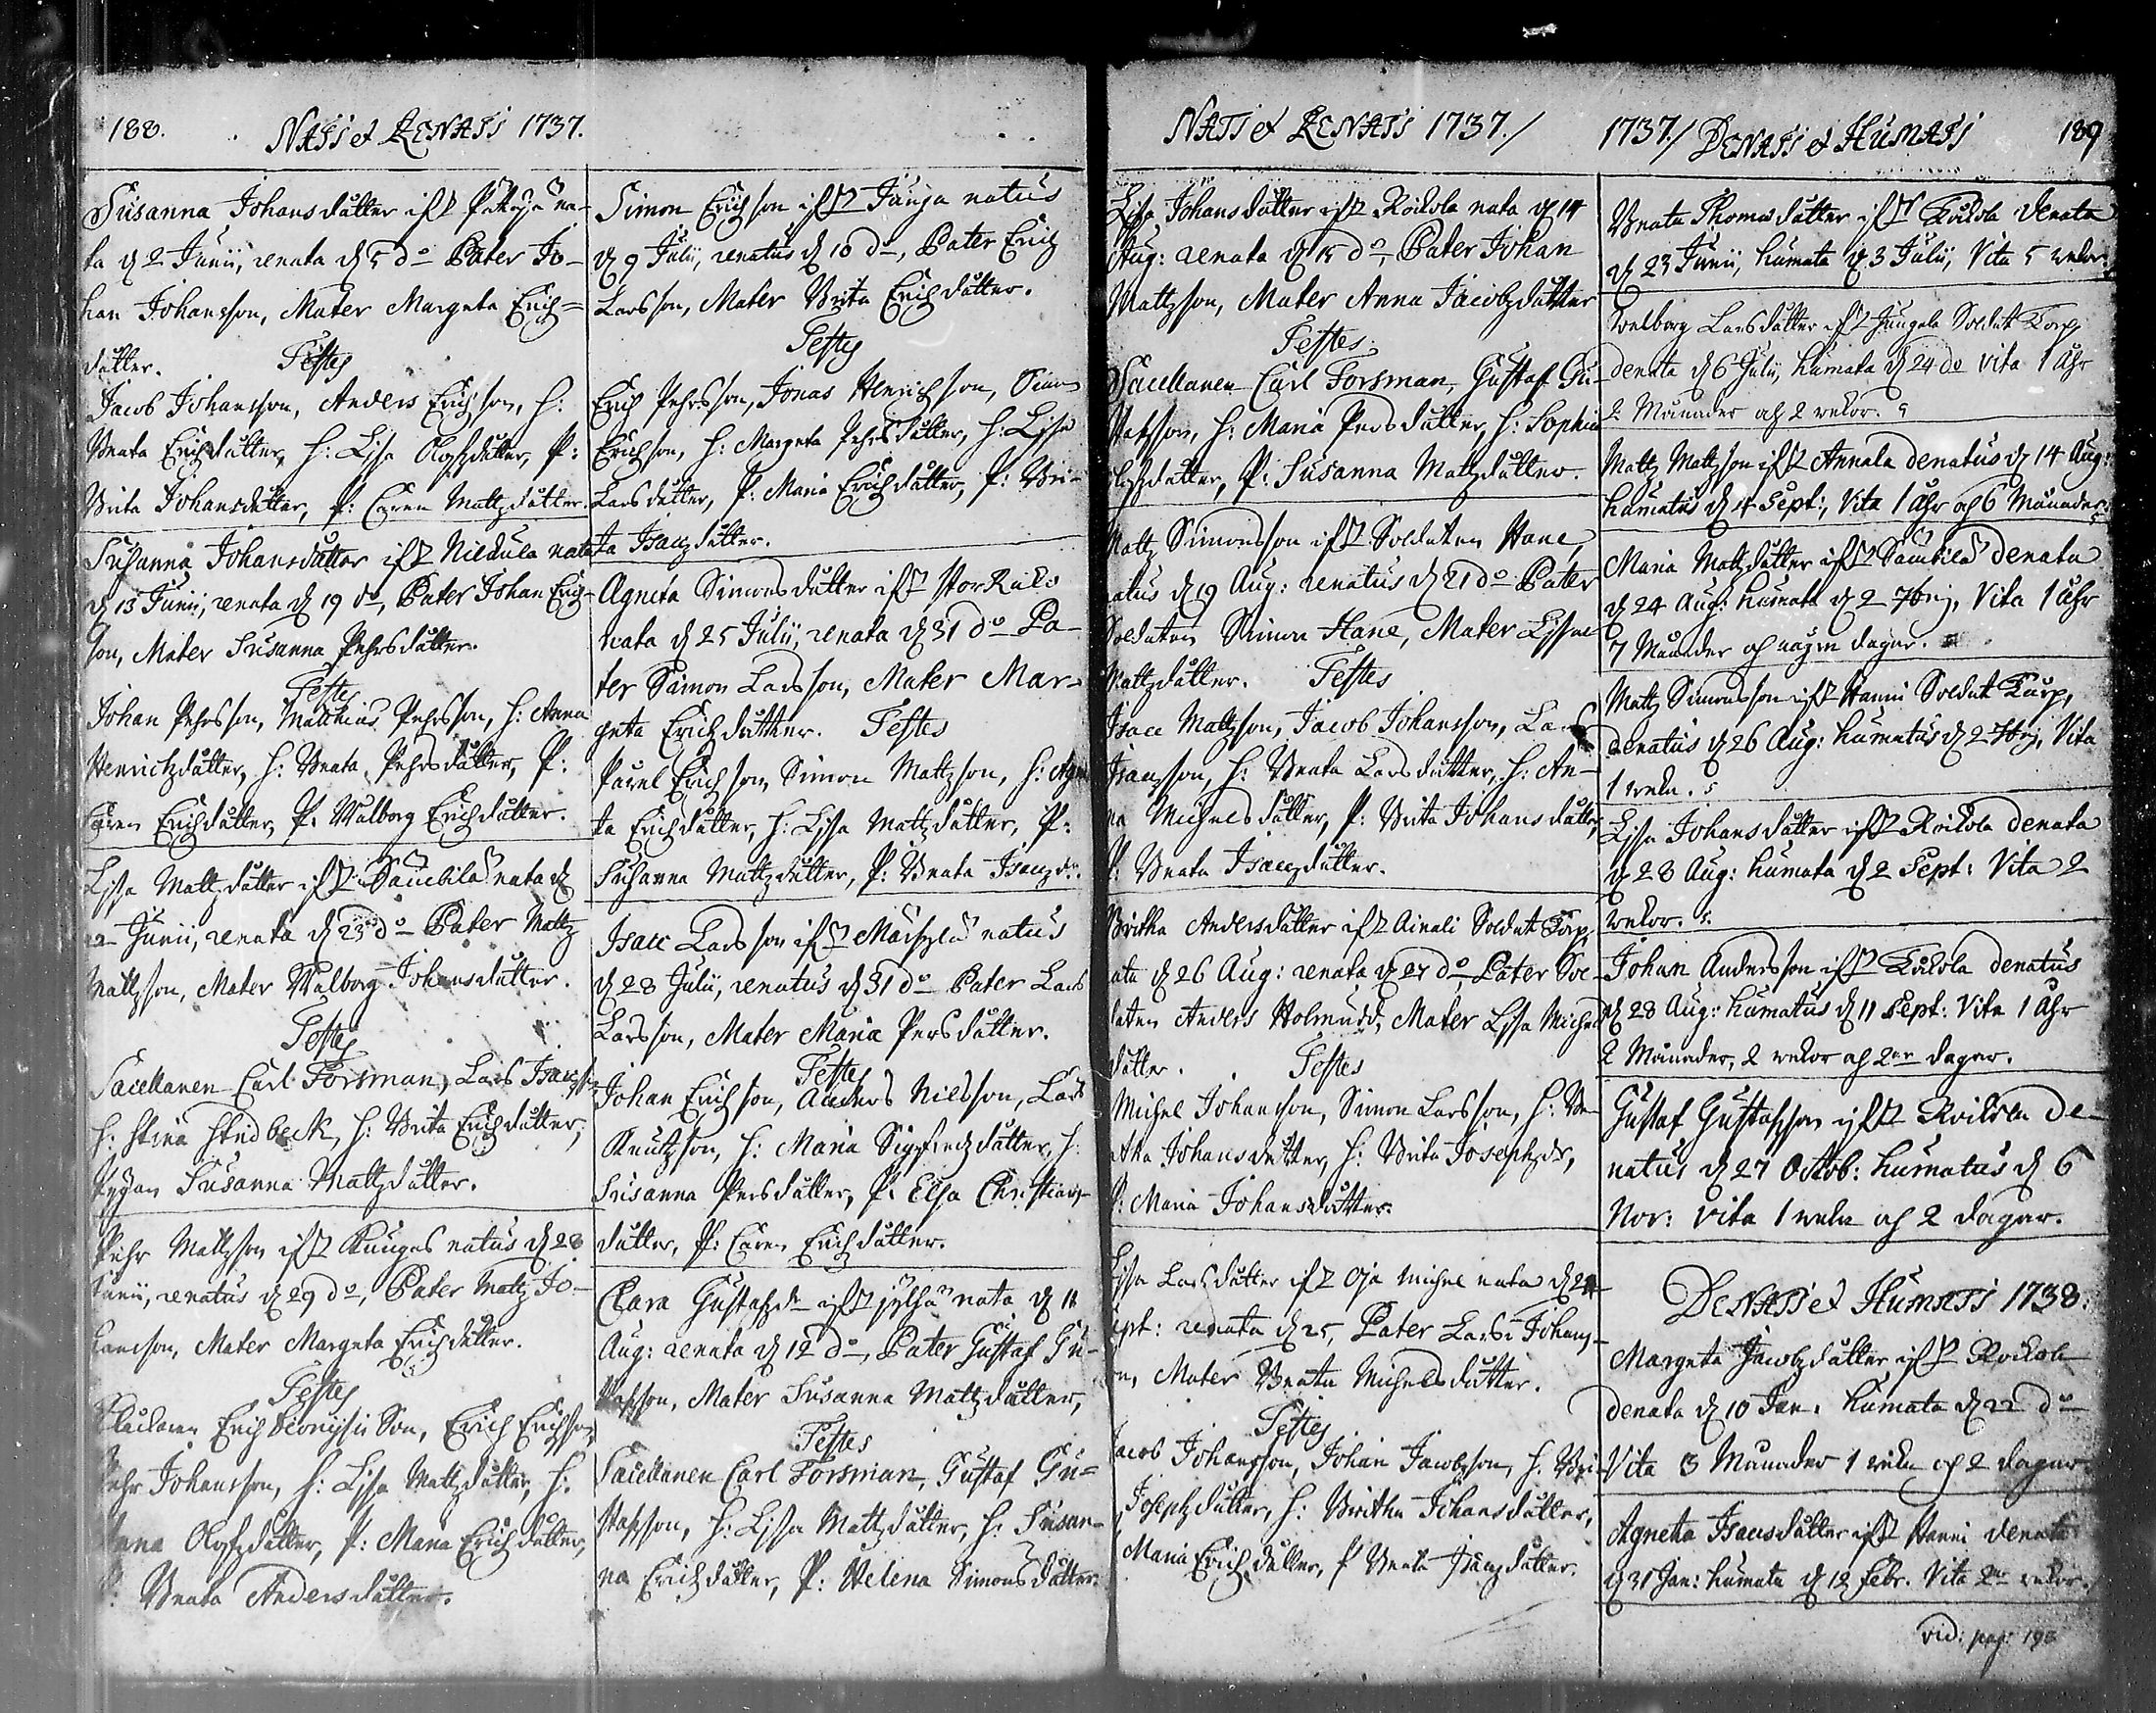 188. NATI et RENATI 1737.
Susanna Johansdåtter ifr. na-
ta d 2 Junii, renata d 5 do Pater Jo-
han Johansson, Mater Margeta Erich=
dåtter. Testes
Jacob Johansson, Anders Erichson, h:
Beata Erichdåtter, h: Lisa Olofzdåtter, P:
Brita Johansdåtter, P: Caren Mattzdåtter.
Susanna Johansdåtter ifr. Nickula nata
d 13 Junii, renata d 19 do, Pater Johan Erich-
son, Mater Susanna Pehrsdåtter.
Testes
Johan Pehrsson, Matthias Pehrsson, h: Anna
Henrichzdåtter, h: Beata Pehrsdåtter, P:
Caren Erichdåtter, P. Walborg Erichdåtter.
Lisa Mattzdåtter ifr. Säückila nata d
Junii, renata d 23 do Pater Mattz
Mattzson, Mater Walborg Johansdåtter.
Testes
Sacellanen Carl Forsman, Lars Isacsson
h: Stina h: Brita Erichdåtter,
Pigan Susanna Mattzdåtter.
Pehr Mattzson ifr. natus d 28
Junii, renatus d 29 do, Pater Mattz Jo-
hansson, Mater Margeta Erichdåtter.
Testes
Klåckaren Erich Dionysii Son, Erich Erichson,
Pehr Johansson, h: Lisa Mattzdåtter, h.
Anna Olofzdåtter, P: Maria Erichdåtter,
P: Beata Andersdåtter.
Simon Erichson ifr. Jauja natus
d 9 Julii, renatus d 10 do, Pater Erich
Larsson, Mater Brita Erichdåtter.
Testes
Erich Pehrsson, Jonas Henrichson, Simon
Erichson, h: Margeta Pehrsdåtter, h: Lisa
Larsdåtter, P: Maria Erichdåtter, P: Bri-
ta Isaczdåtter.
Agneta Simonsdåtter ifr. StorRiko
nata d 25 Julii, renata d 31 do Pa-
ter Simon Larsson, Mater Mar-
geta Erichdåtter. Testes
Påvel Erichson, Simon Mattzson, h: Agne
ta Erichdåtter, h: Lisa Mattzdåtter, P:
Susanna Mattzdåtter, P: Beata Isaczdr.
Isaac Larsson ifr. natus
d 28 Julii, renatus d 31 do Pater Lars
Larsson, Mater Maria Persdåtter.
Testes
Johan Erichson, Anders Nilsson, Lars
Knutzson, h: Maria Sigfredzdåtter, h:
Susanna Persdåtter, P: Elsa Christians-
dåtter, P: Caren Erichdåtter.
Clara Gustafzdr ifr. nata d 11
Aug: renata d 12 do, Pater Gustaf Gu-
stafsson, Mater Susanna Mattzdåtter,
Testes
Sacellanen Carl Forsman, Gustaf Gu=
stafsson, h: Lisa Mattzdåtter, h: Susan-
na Erichdåtter, P: Helena Simonsdåtter.
NATI et RENATI 1737./
Lisa Johansdåtter ifr. Roikola nata d 14
Aug: renata d 15 do, Pater Johan
Mattzson, Mater Anna Jacobzdåtter
Testes
Sacellanen Carl Forsman, Gustaf Gu-
stafsson, h: Maria Persdåtter, h: Sophia
P: Susanna Mattzdåtter.
Mattz Simonsson ifr. Soldaten Hane,
natus d 19 Aug: renatus d 21 do Pater
Soldaten Simon Hane, Mater Lissa
Mattzdåtter. Testes
Isaac Mattzson, Jacob Johansson, Lars
Isaacsson, h: Beata Larsdåtter, h: An-
na Michelsdåtter, P: Brita Johansdåtter,
P: Beata Isaczdåtter.
Britha Andersdåtter ifr. Ainali Soldat Torp,
nata d 26 Aug: renata d 27 do, Pater Sol-
daten Anders Holmudd, Mater Lissa Michels
dåtter. Testes
Michel Johansson, Simon Larsson, h: Be-
atha Johansdåtter, h: Brita Josephzdr,
P: Maria Johansdåtter.
Lissa Larsdåtter ifr. Oja Michel nata d 24
Sept: renata d 25, Pater Lars Johans-
son, Mater Beata Michelsdåtter.
Testes
Jacob Johansson, Johan Jacobzson, h. Bri-
Josephzdåtter, h: Britha Johansdåtter,
Maria Erichdåtter, P Beata Isaczdåtter.
1737./ DENATI et HUMATI 189
Beata Thomasdåtter ifr. Kåkola denata
d 23 Junii, humata d 3 Julii, Vita 5 wekor.
Walborg Larsdåtter ifr. Soldat Torp,
denata d 6 Julii, humata d 24 do vita 1 åhr
2 Månader och 2 wekor.
Mattz Mattzson ifr. Annala denatus d 14 Aug:
humatus d 4 Sept:, Vita 1 åhr och 6 Månader.
Maria Mattzdåtter ifr. Säückila denata
d 24 Aug: humata d 2 7brij, Vita 1 åhr
7 Månader och några dagar.
Mattz Simonsson ifr. Hanni Soldat Torp,
denatus d 26 Aug: humatus d 2 7brij, Vita
1 weka.
Lissa Johansdåtter ifr. Roikola denata
d 28 Aug: humata d 2 Sept: Vita 2
wekor.
Johan Andersson ifr. Kåkola denatus
d 28 Aug: humatus d 11 Sept: Vita 1 åhr
2 Månader, 2 wekor och 2ne dagar.
Gustaf Gustafsson ifr. Roikola de-
natus d 27 Octob: humatus d 6
Nov: vita 1 weka och 2 dagar.
DENATI et HUMATI 1738.
Margeta Jacobzdåtter ifr. Roikola
denata d 10 Jan. humata d 22 do
Vita 3 Månader 1 weka och 2 dagar.
Agneta Isacsdåtter ifr. Hanni denata
d 31 Jan: humata d 12 Febr. Vita 2ne wekor.
vid: pag: 196